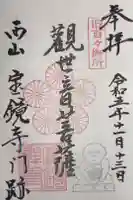 奉拝
令和五年十一月十三日
觀世音菩薩
西山 宝鏡寺門跡